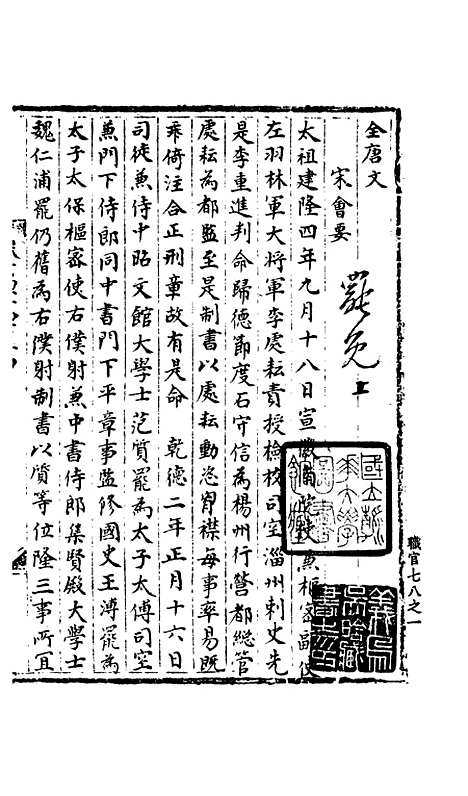 全唐文
宋會要
罷免上
太祖建隆四年九月十八日宣徽南院使兼樞密副使
左羽林軍大將軍李處耘責授檢校司空淄州刺史先
是李重進判命歸德節度石守信為楊州行營都總管
處耘為都監至是制書以處耘動恣胷襟每事率易既
乘倚注合正刑章故有是命 乾德二年正月十六日
司徒兼侍中昭文館大學士范質罷為太子太傅司空
兼門下侍郎同中書門下平章事監修國史王溥罷為
太子太保樞密使右僕射兼中書侍郎集賢殿大學士
魏仁浦罷仍舊為右僕射制書以質等位隆三事所宜
職官七八之一